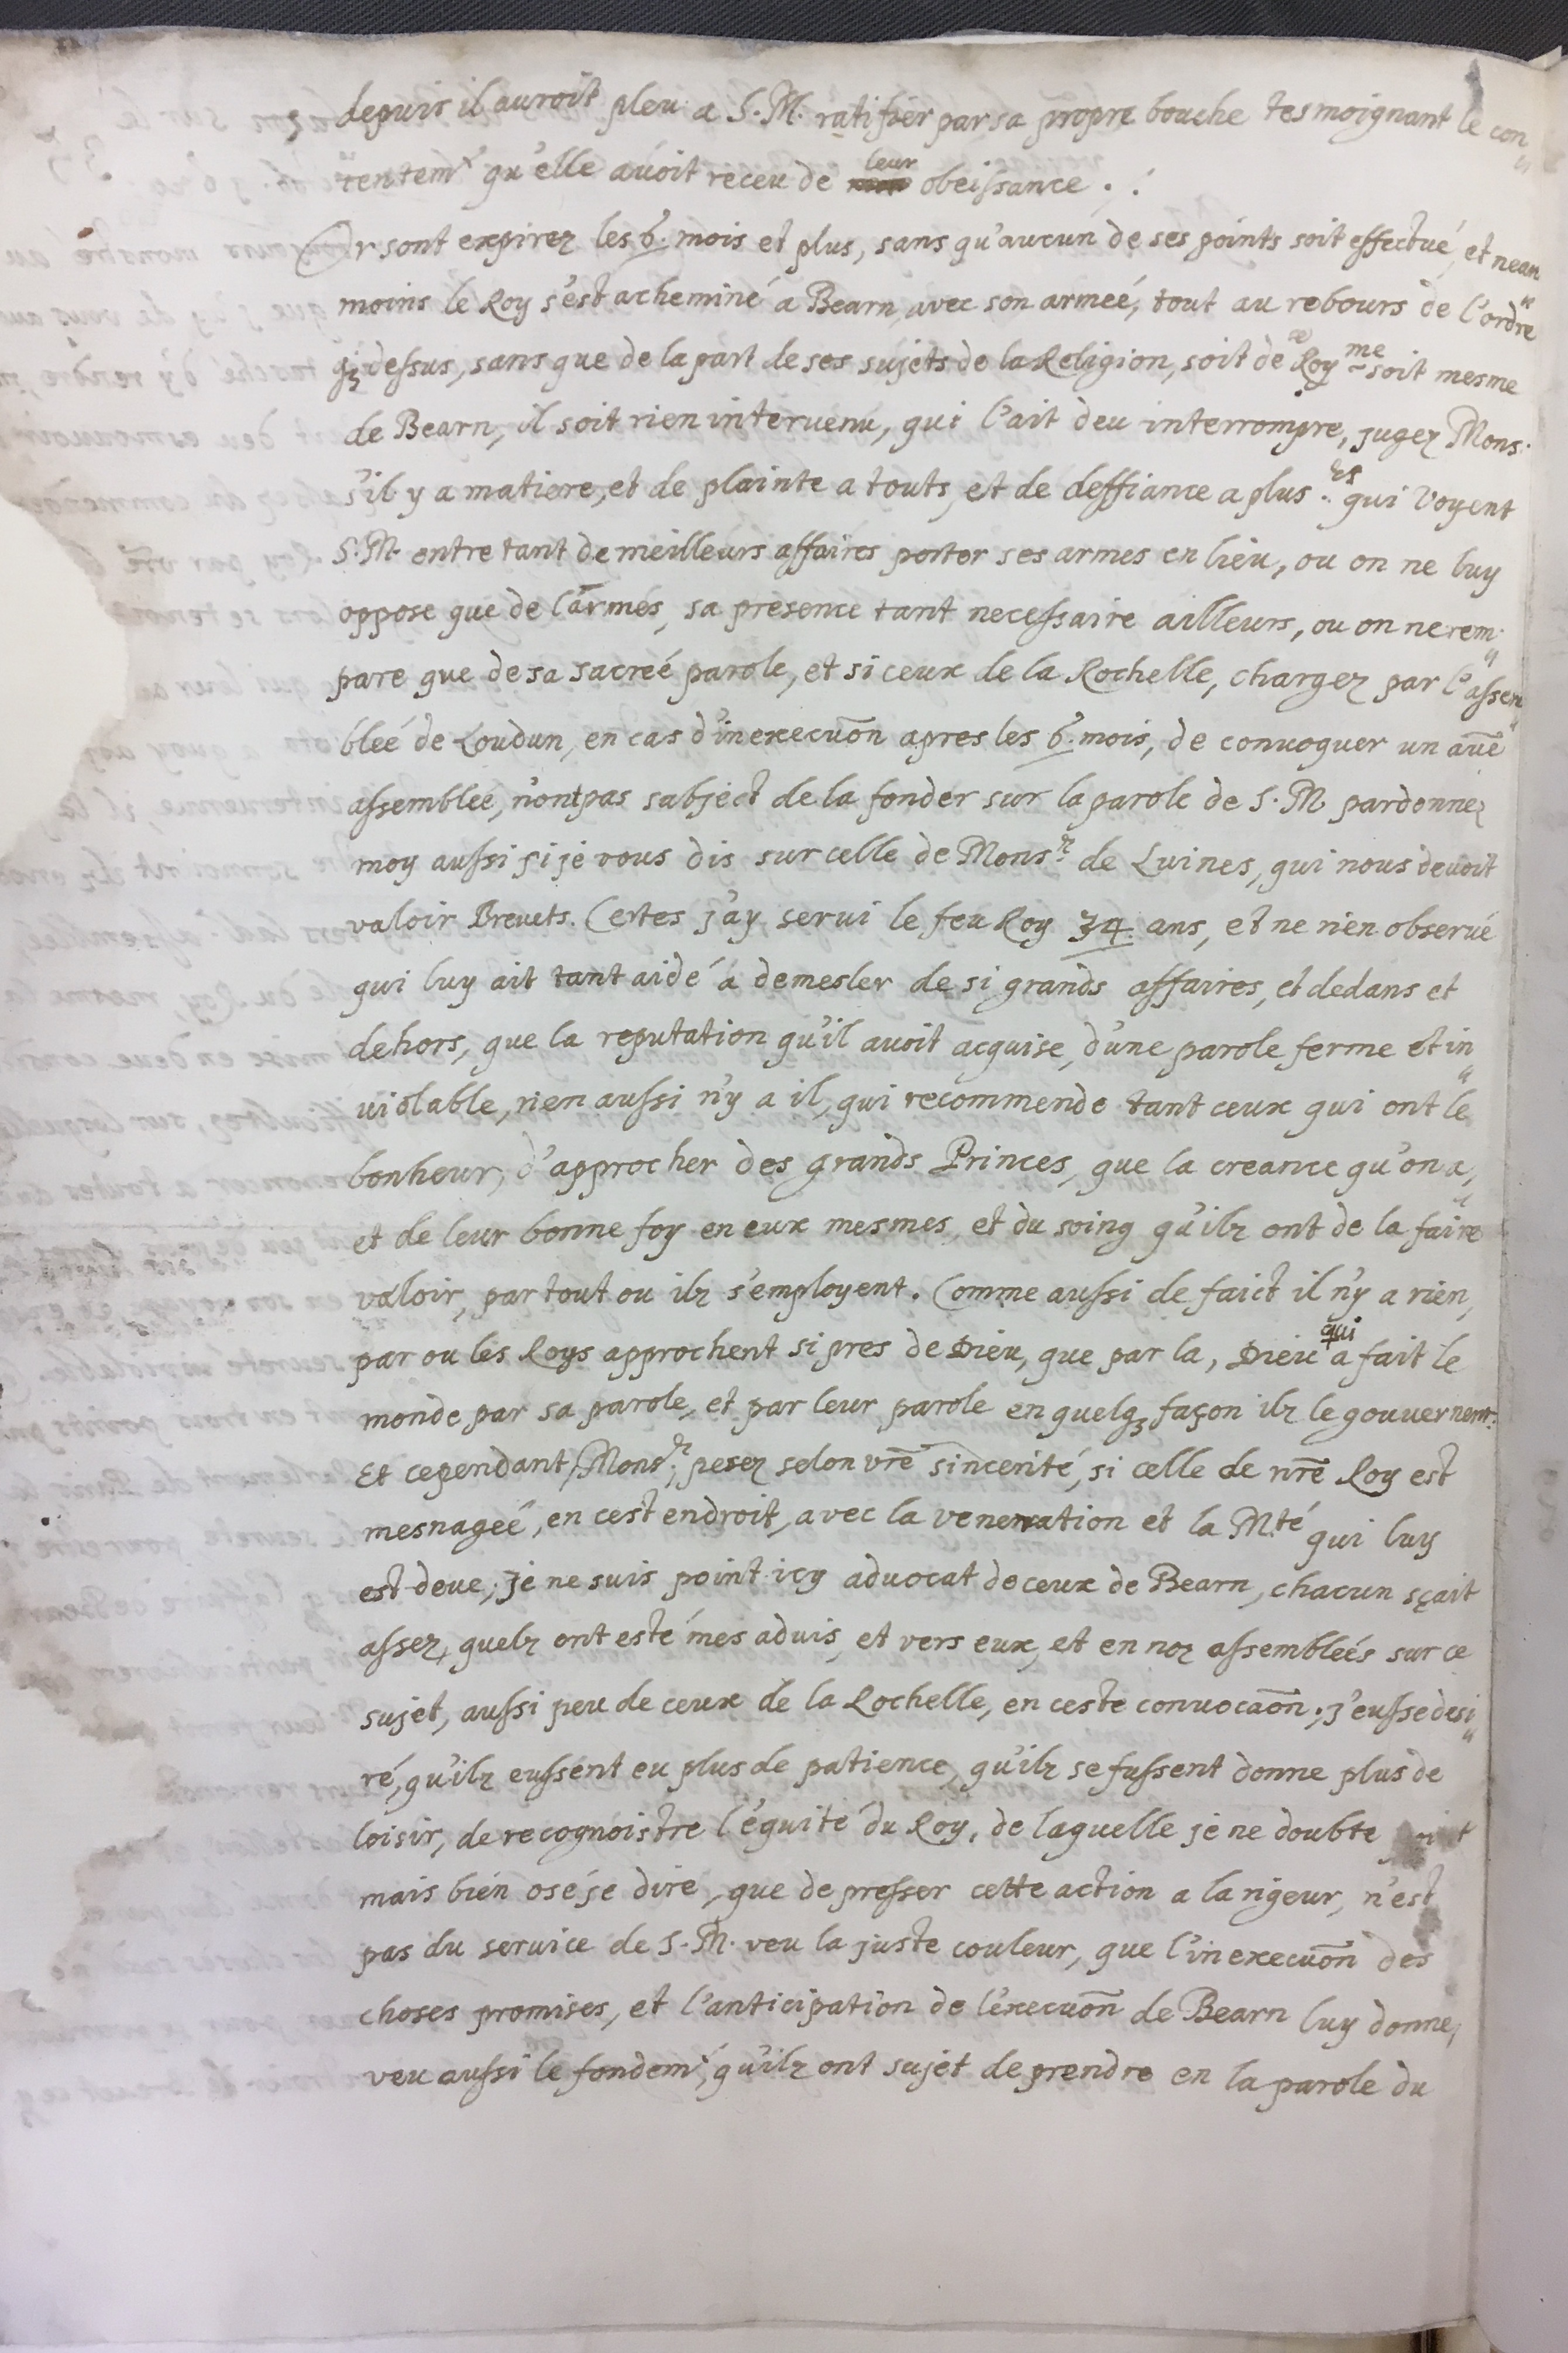 depuis il auroit pleu a S. M. ratifier par sa propre bouche tesmoignant le con"
tentemt qu'elle avoit receu de leur obeissance.
Or sont expirez les 6. mois et plus, sans qu'aucun de ses points soit effectué, et nean"
moins le Roy s'est acheminé a Bearn, avec son armeé, tout au rebours de l'ordre
dessus, sans que de la part de ses sujets de la Religion, soit de ce Royme soit mesme
de Bearn, il soit rien intervenu, qui l'ait deu interrompre, jugez Mons.
s'il y a matiere, et de plainte a touts, et de deffiance a plus.rs qui voyent
S. M. entre tant de meilleurs affaires porter ses armes en lieu, ou on ne luy
oppose que de larmes, sa presence tant necessaire ailleurs, ou on ne rem"
pare que de sa sacreé parole, et si ceux de la Rochelle, chargez par l'assem"
bleé de Loudun, en cas d'inexecuõn apres les 6. mois, de convoquer un aũe
assembleé, n'ont pas sabject de la fonder sur la parole de S. M. pardonnez
moy aussi si je vous dis sur celle de Monsr. de Luines, qui nous devoit
valoir Brevets. Certes j'ay servi le feu Roy 34. ans, et ne rien observé
qui luy ait tant aidé a demesler de si grands affaires, et dedans et
dehors, que la reputation qu'il avoit acquise, d'une parole ferme et in"
violable, rien aussi n'y a il, qui recommende tant ceux qui ont le
bonheur, d'approcher des grands Princes, que la creance qu'on a,
et de leur bonne foy en eux mesmes, et du soing qu'ilz ont de la faire
valoir, par tout ou ilz s'employent. Comme aussi de faict il n'y a rien,
par ou les Roys approchent si pres de Dieu, que par la, Dieu qui a fait le
monde par sa parole, et par leur parole en quelqȝ façon ilz le gouvernent.
Et cependant, Monsr. pesez selon vrẽ sincerité, si celle de nrẽ Roy est
mesnageé, en cest endroit, avec la veneration et la M.té qui luy
est deue; je ne suis point icy advocat de ceux de Bearn, chacun sçait
assez, quelz ont esté mes advis, et vers eux, et en noz assembleés sur ce
sujet, aussi peu de ceux de la Rochelle, en ceste convocaõn; j'eusse desi"
ré, qu'ilz eussent eu plus de patience, qu'ilz se fussent donne plus de
loisir, de recognoistre l'équité du Roy, de laquelle je ne doubte point
mais bien osé je dire, que de presser cette action a la rigeur, n'est
pas du service de S. M. veu la juste couleur, que l'inexecuõn des
choses promises, et l'anticipation de l'execuõn de Bearn luy donne,
veu aussi le fondemt, qu'ilz ont sujet de prendre en la parole du